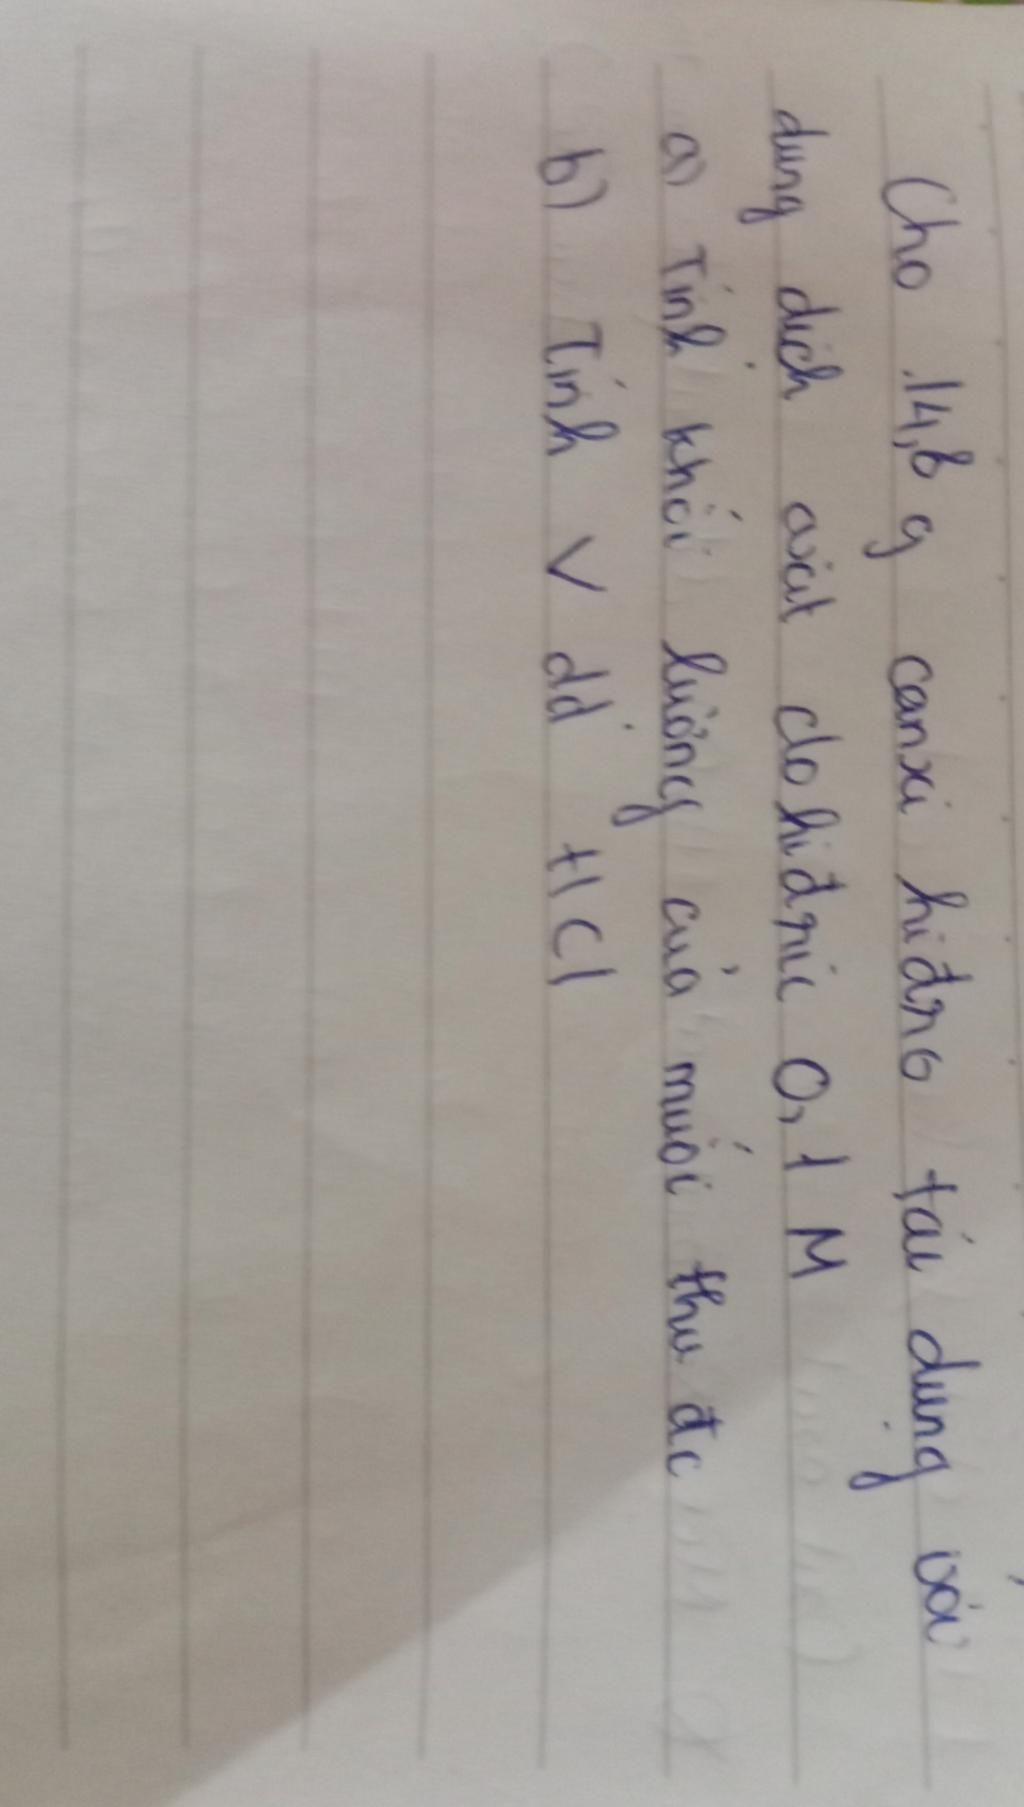 Cho 14,8 g canxi hiđro tác dụng với
dung dịch axit clohiđric 0,1 M
a) Tính khối lượng của muối thu đc
b) Tính V dd HCl